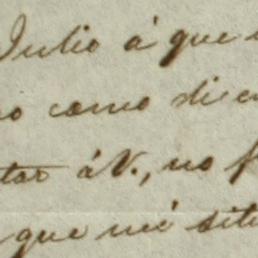 Julio á que
no como dice
tar á V., no
que mi situ